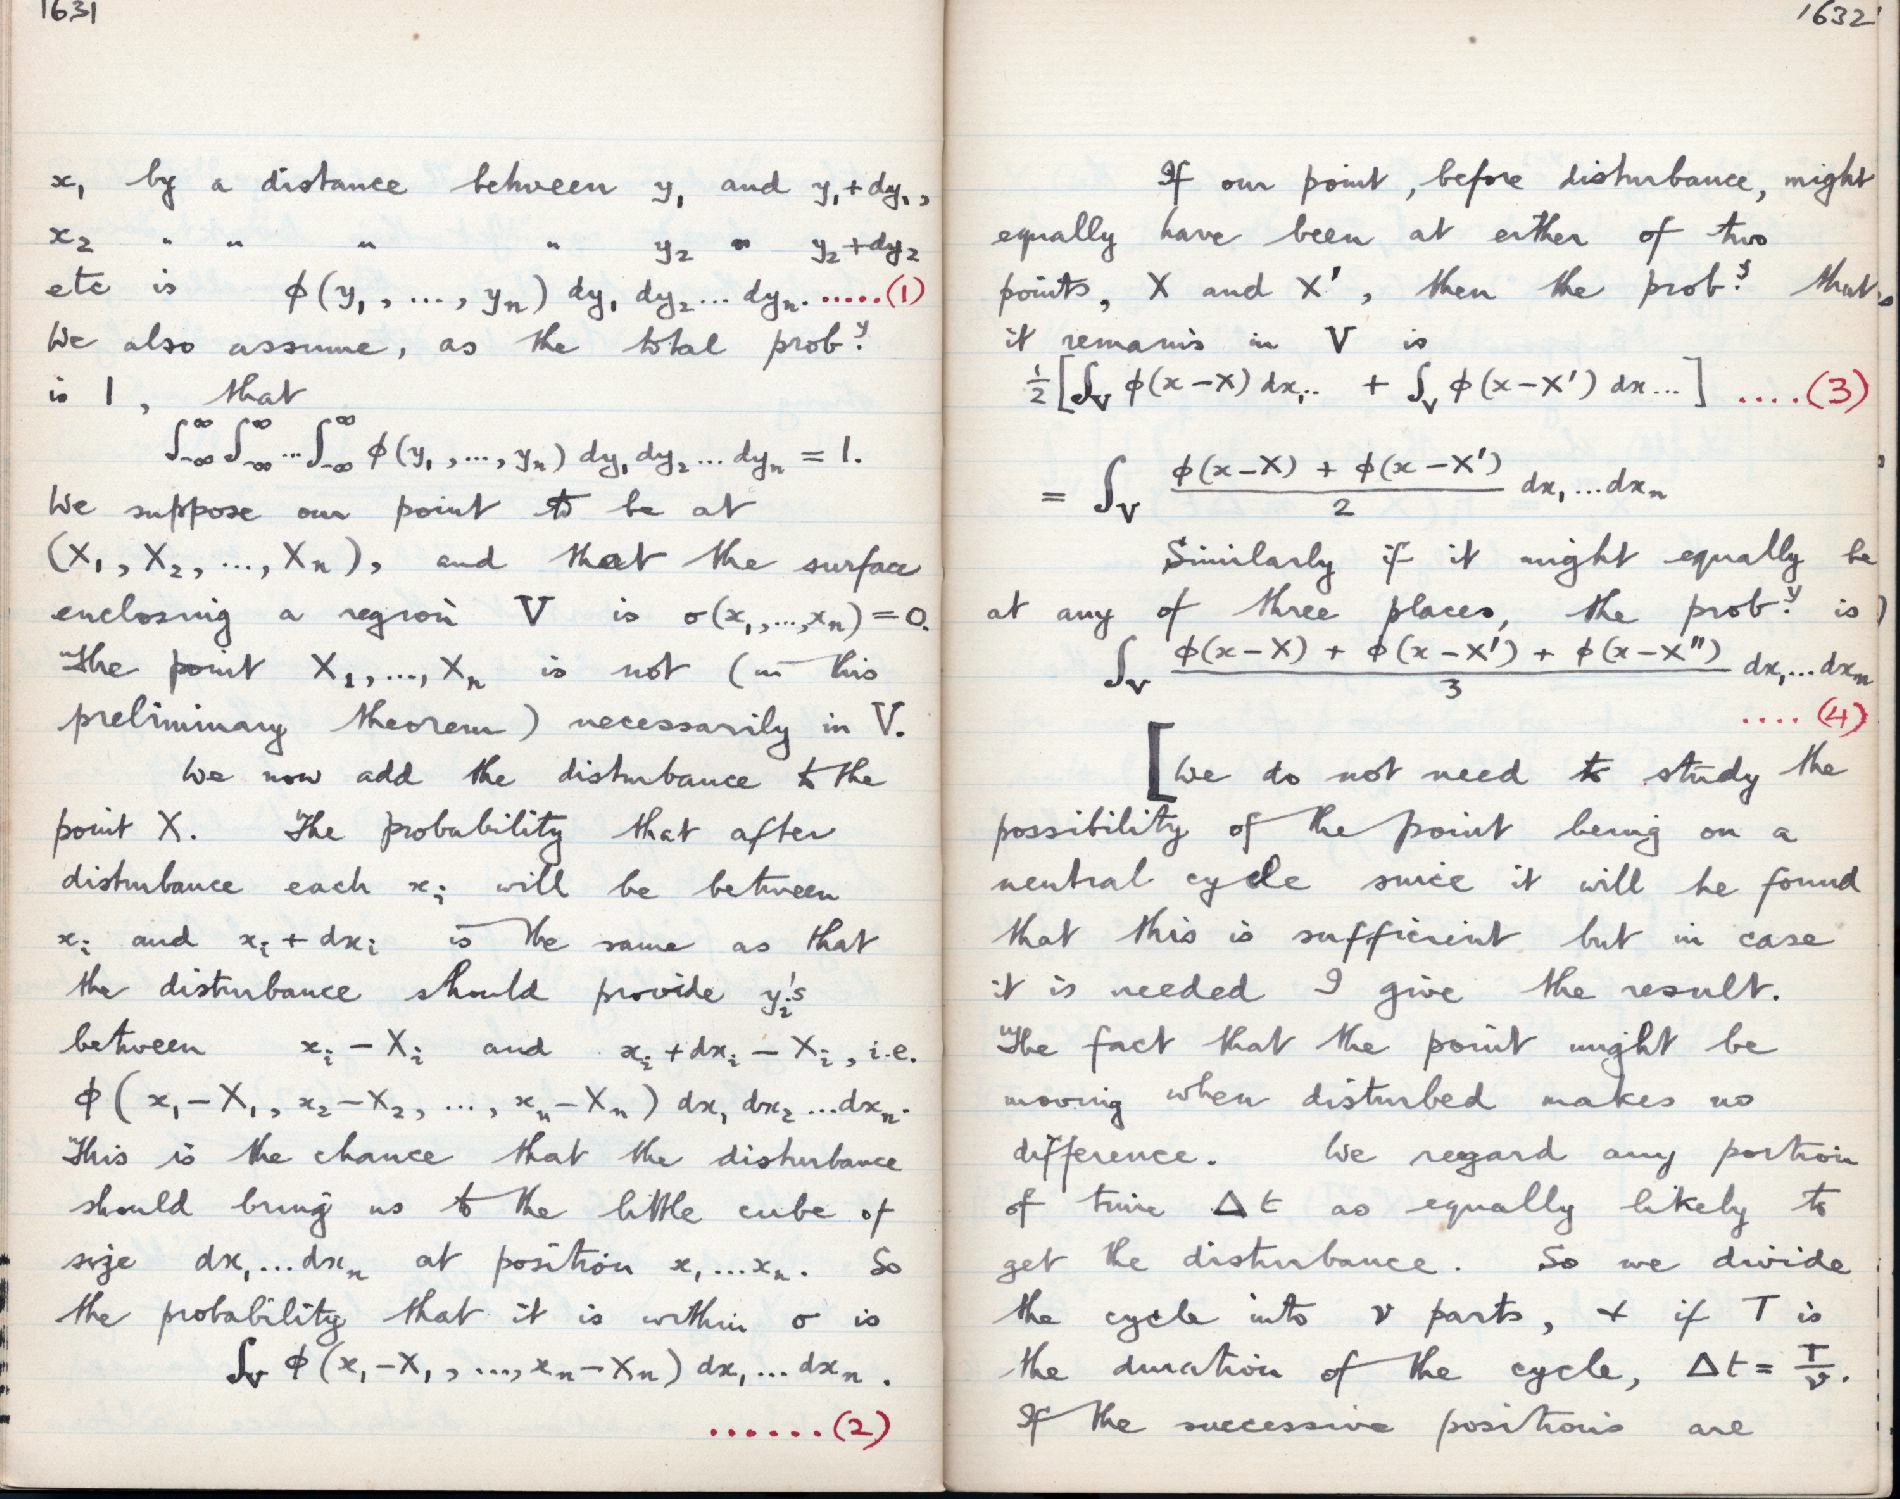 1631
x₁ by a distance between y₁ and y₁+dy₁,
x₂ " " " " y₂ " y₂+dy₂
etc is ϕ(y₁, ..., yₙ) dy₁ dy₂... dyₙ. .....(1)
We also assume, as the total prob.ʸ
is 1, that
∫₋∞^∞ ∫₋∞^∞ ... ∫₋∞^∞ ϕ(y₁, ..., yₙ) dy₁ dy₂... dyₙ = 1.
We suppose our point to be at
(X₁, X₂, ..., Xₙ), and that the surface
enclosing a region V is σ(x₁,...,xₙ)=0.
The point X₁, ..., Xₙ is not (in this
preliminary theorem) necessarily in V.
We now add the disturbance to the
point X. The probability that after
disturbance each xᵢ will be between
xᵢ and xᵢ+dxᵢ is the same as that
the disturbance should provide yᵢ's
between xᵢ-Xᵢ and xᵢ+dxᵢ-Xᵢ, i.e.
ϕ(x₁-X₁, x₂-X₂, ..., xₙ-Xₙ) dx₁ dx₂ ...dxₙ.
This is the chance that the disturbance
should bring us to the little cube of
size dx₁...dxₙ at position x₁...xₙ. So
the probability that it is within σ is
∫ᵥ ϕ(x₁-X₁, ..., xₙ-Xₙ) dx₁... dxₙ.
......(2)
1632
If our point, before disturbance, might
equally have been at either of two
points, X and X', then the prob.ʸ that
it remains in V is
½[∫ᵥ ϕ(x-X) dx₁.. + ∫ᵥ ϕ(x-X') dx...] ....(3)
= ∫ᵥ (ϕ(x-X) + ϕ(x-X'))/2 dx₁...dxₙ
Similarly if it might equally be
at any of three places, the prob.ʸ is
∫ᵥ (ϕ(x-X) + ϕ(x-X') + ϕ(x-X"))/3 dx₁...dxₙ
....(4)
[We do not need to study the
possibility of the point being on a
neutral cycle since it will be found
that this is sufficient but in case
it is needed I give the result.
The fact that the point might be
moving when disturbed makes no
difference. We regard any portion
of time Δt as equally likely to
get the disturbance. So we divide
the cycle into ν parts, + if T is
the duration of the cycle, Δt = T/ν.
If the successive positions are